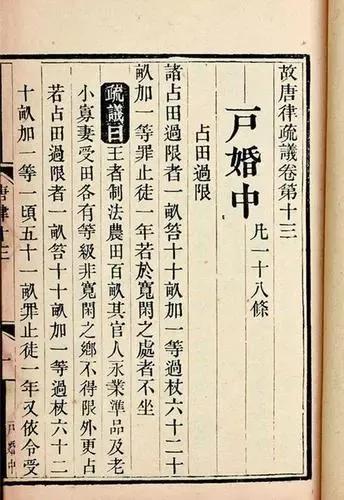 故唐律疏議卷第十三
戸婚中 凡一十八條
占田過限
諸占田過限者一畝笞十十畝加一等過杖六十二十
畝加一等罪止徒一年若於寬閑之處者不坐
疏議曰王者制法農田百畝其官人永業準品及老
小寡妻受田各有等級非寬閑之鄉不得限外更占
若占田過限者一畝笞十十畝加一等過杖六十二
十畝加一等一頃五十一畝罪止徒一年又依令受
唐律十三
一
戸婚中